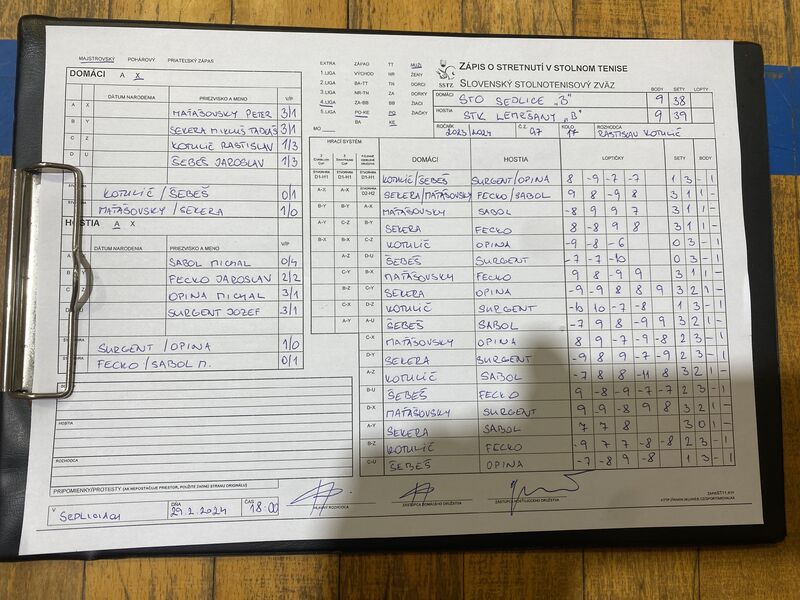 MAJSTROVSKÝ POHÁROVÝ PRIATEĽSKÝ ZÁPAS
DOMÁCI A X
DÁTUM NARODENIA PRIEZVISKO A MENO V/P
A X MAŤAŠOVSKY PETER 3/1
B Y SEKERA MIKULÁŠ TADEÁŠ 3/1
C Z KOTULIČ RASTISLAV 1/3
D U ŠEBEŠ JAROSLAV 1/3
KOTULIČ/ŠEBEŠ 0/1
MAŤAŠOVSKY/SEKERA 1/0
HOSTIA A X
DÁTUM NARODENIA PRIEZVISKO A MENO V/P
SABOL MICHAL 0/4
FECKO JAROSLAV 2/2
OPINA MICHAL 3/1
SURGENT JOZEF 3/1
SURGENT/OPINA 1/0
FECKO/SABOL M. 0/1
HOSTIA
ROZHODCA
PRIPOMIENKY/PROTESTY (AK NEPOSTAČUJE PRIESTOR, POUŽITE ZADNÚ STRANU ORIGINÁLU)
V SEDLICIACH DŇA 29.2.2024 ČAS 18:00
HLAVNÝ ROZHODCA
ZÁSTUPCA DOMÁCEHO DRUŽSTVA
ZÁSTUPCA HOSŤUJÚCEHO DRUŽSTVA
EXTRA ZÁPAD TT MUŽI
1.LIGA VÝCHOD NR ŽENY
2.LIGA BA-TT TN DORCI
3.LIGA NR-TN ZA DORKY
4.LIGA ZA-BB BB ŽIACI
5.LIGA PO-KE PO ŽIAČKY
BA KE
MO
SSTZ
ZÁPIS O STRETNUTÍ V STOLNOM TENISE
SLOVENSKÝ STOLNOTENISOVÝ ZVÄZ
BODY SETY LOPTY
DOMÁCI STO SEDLICE "B" 9 38
HOSTIA STK LEMEŠANY "B" 9 39
ROČNÍK 2023/2024 Č.Z. 97 KOLO 17 ROZHODCA RASTISLAV KOTULIČ
HRACÍ SYSTÉM
DOMÁCI HOSTIA LOPTIČKY SETY BODY
KOTULIČ/ŠEBEŠ SURGENT/OPINA 8 -9 -7 -7 1 3 - 1
SEKERA/MAŤAŠOVSKY FECKO/SABOL 9 8 -9 8 3 1 1 -
A-X A-X B-Y MAŤAŠOVSKY SABOL -8 9 9 7 3 1 1 -
B-Y B-Y A-X
A-Y C-Z B-Y SEKERA FECKO 8 -8 9 8 3 1 1 -
B-X B-X C-Z KOTULIČ OPINA -9 -8 -6 0 3 - 1
A-Z D-U ŠEBEŠ SURGENT -7 -7 -10 0 3 - 1
C-Y B-X MAŤAŠOVSKY FECKO 9 8 -9 9 3 1 1 -
SEKERA OPINA -9 -9 8 8 9 3 2 1 -
C-X D-Z KOTULIČ SURGENT -10 10 -7 -8 1 3 - 1
A-Y A-U ŠEBEŠ SABOL -7 9 8 -9 9 3 2 1 -
C-X MAŤAŠOVSKY OPINA 8 9 -7 -9 -8 2 3 - 1
D-Y SEKERA SURGENT -9 8 9 -7 -9 2 3 - 1
A-Z KOTULIČ SABOL -7 8 8 -11 8 3 2 1 -
B-U ŠEBEŠ FECKO 9 -8 9 -7 -7 2 3 - 1
D-X MAŤAŠOVSKY SURGENT 9 9 -8 9 8 3 2 1 -
A-Y SEKERA SABOL 7 7 8 3 0 1 -
B-Z KOTULIČ FECKO -9 7 7 -8 -8 2 3 - 1
C-U ŠEBEŠ OPINA -7 -8 9 -8 1 3 - 1